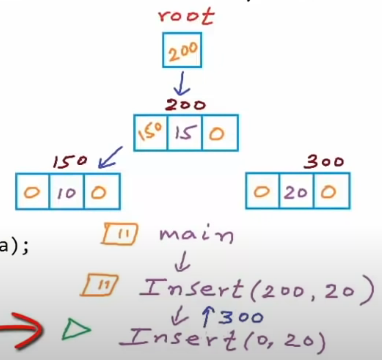 root
200
200
150 15 0
150 300
0 10 0 0 20 0
a);
11 main
11 Insert(200, 20)
300
Insert(0, 20)